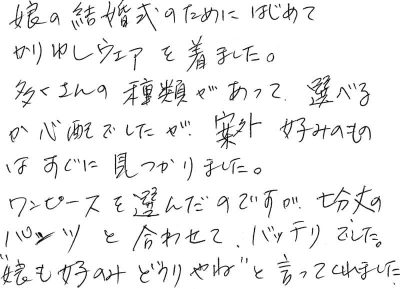 娘の結婚式のために はじめて
かりゆしウェア を着ました。
多くさんの 種類があって、選べる
か心配でしたが、案外 好みのもの
は すぐに 見つかりました。
ワンピースを選んだのですが、七分丈の
パンツ と 合わせて、バッチリ でした。
"娘も好のみ どうりやね"と言ってくれました